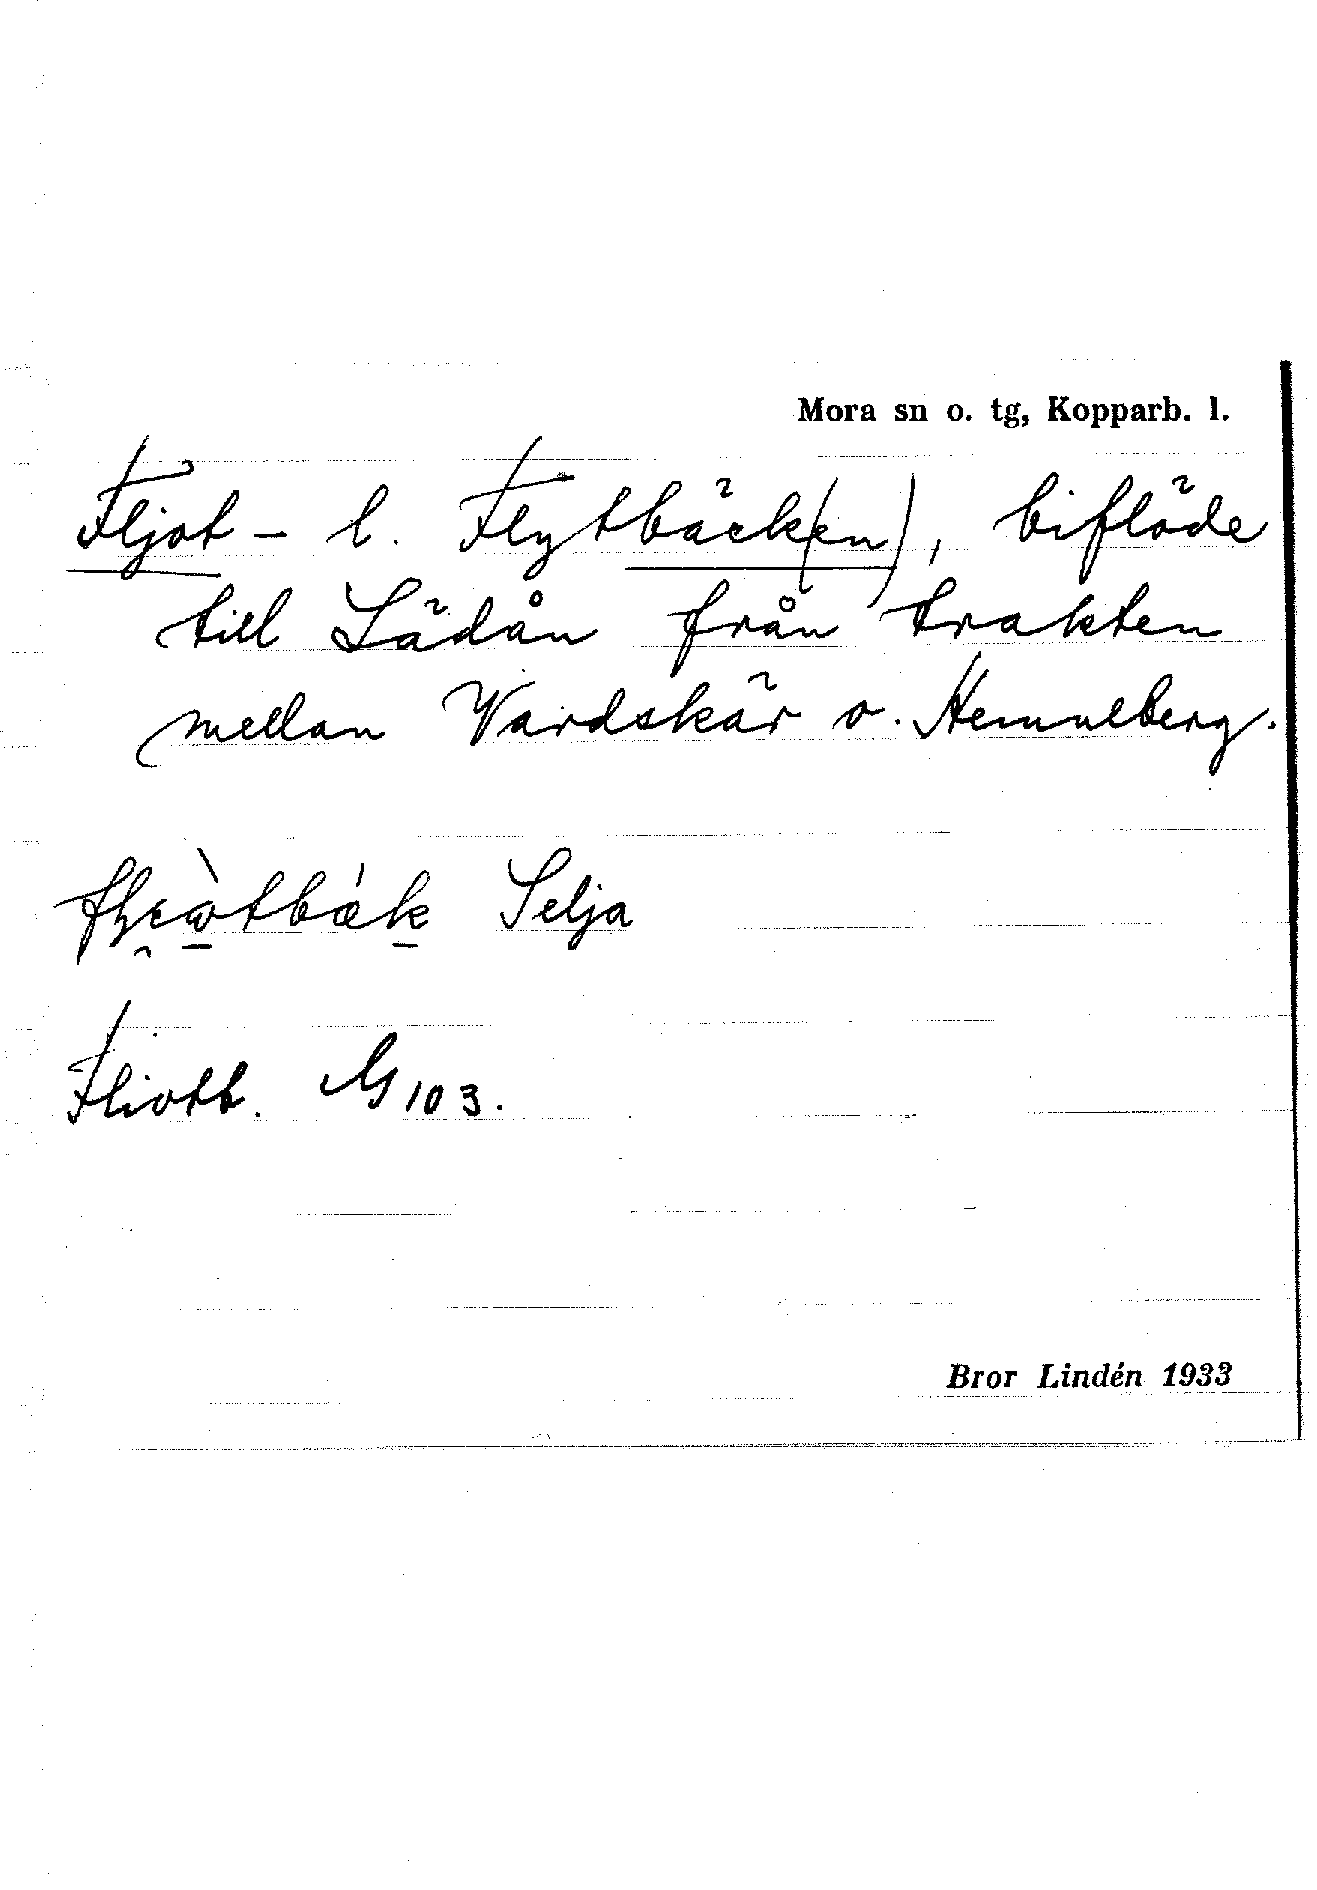 Mora sn o. tg, Kopparb. l.
Fljot- l. Flytbäck(en), biflöde
till Lädån från trakten
mellan Vardskär o. Hemulberg.
Selja
Fliotb. G 103.
Bror Lindén 1933